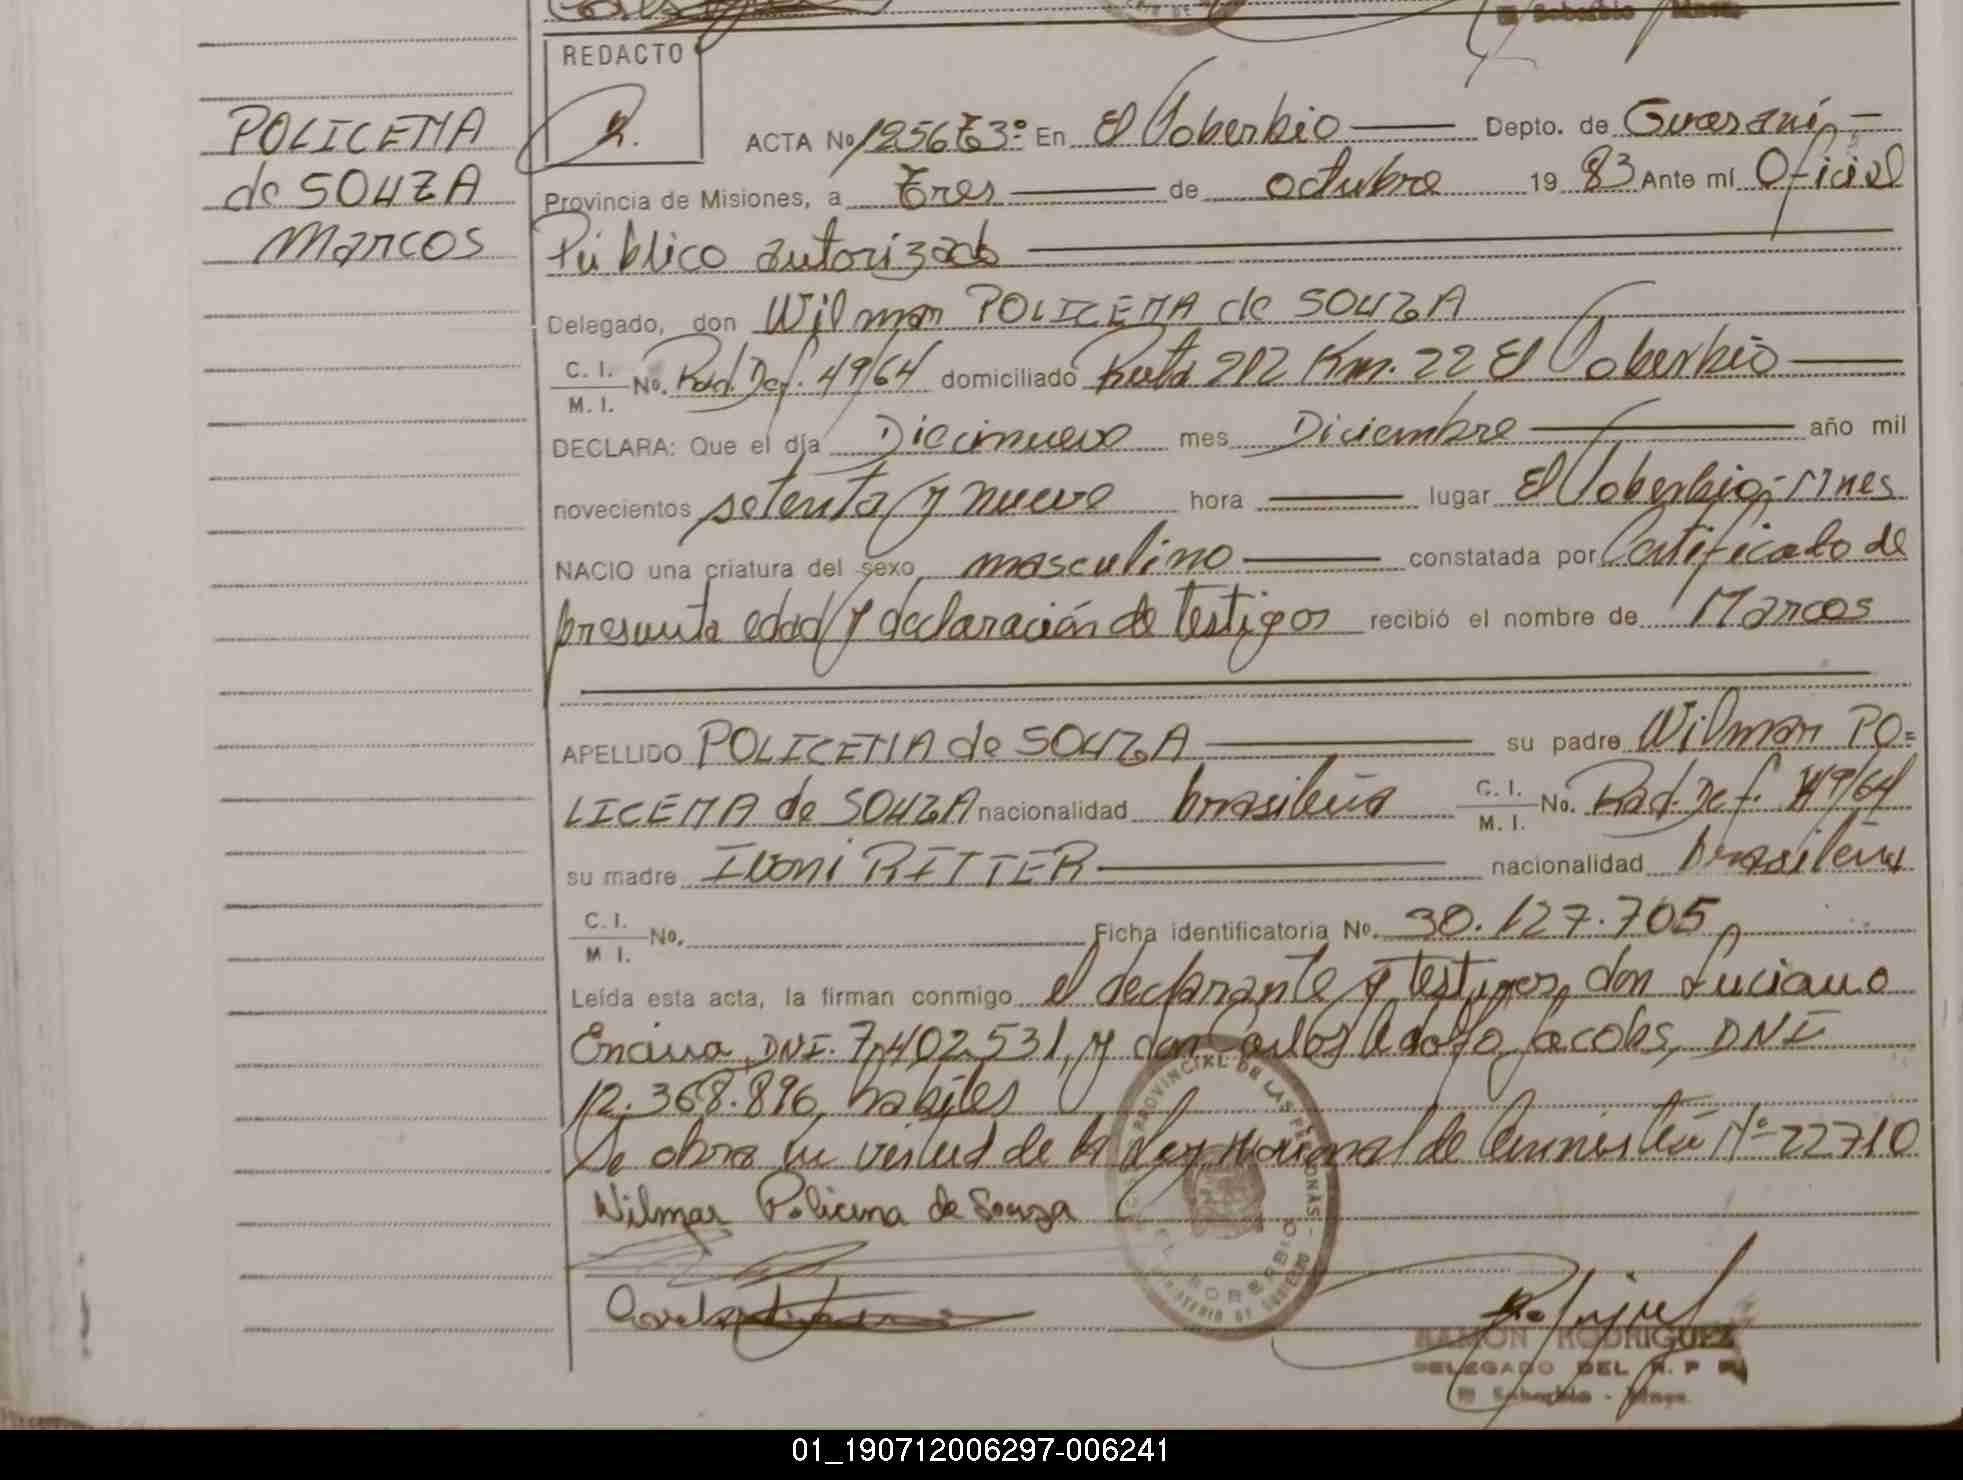 REDACTO
POLICEMA
de SOUZA
Marcos
ACTA No 1256 T3º En El Soberbio Depto. de Guaraní
Provincia de Misiones, a Tres de octubre 19 83 Ante mí Oficial
Público autorizado
Delegado, don Wilmar POLICEMA de SOUZA
C. I.
M. I. No. Rad. Def. 49/64 domiciliado Ruta 212 Km. 22 El Soberbio
DECLARA: Que el día Diecinueve mes Diciembre año mil
novecientos setenta y nueve hora lugar El Soberbio, Mnes
NACIO una criatura del sexo masculino constatada por Certificato de
presunta edad y declaración de Testigos recibió el nombre de Marcos
APELLIDO POLICEMA de SOUZA su padre Wilmar PO=
LICEMA de SOUZA nacionalidad brasileña C. I. M. I. No. Rad. Def. 49/64
su madre Ivoni RITTER nacionalidad brasileña
C. I.
M I. No. Ficha identificatoria No. 30.127.705
Leída esta acta, la firman conmigo el declarante y testigos, don Luciano
Encina, DNI. 7.402.531, y don Carlos Adolfo Jacobs, DNI
12.368.896, habiles
Se obra en virtud de la Ley Nacional de Amnistía Nº 22710
Wilmar Policena de Souza
RAMON RODRIGUEZ
DELEGADO DEL R. P P
El Soberbio - Mnes.
PROVINCIAL DE LAS PERSONAS
EL SOBERBIO
MINISTERIO DE GOBIERNO
01_190712006297-006241